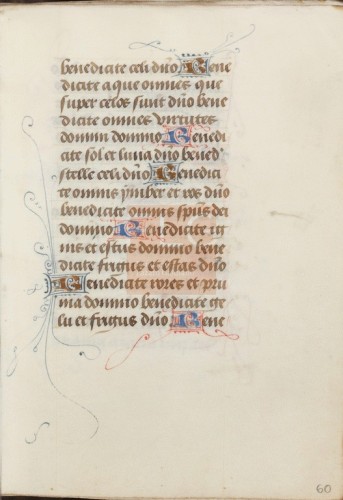 benedicite celi dño Bene
dicite aque omnes que
super celos sunt dño bene
dicite omnes virtutes
domini domino Benedi
cite sol et luna dño bened
stelle celi dño Benedici
te omnis ymber et ros dño
benedicite omnis spũs dei
domino Benedicite ig
nis et estus domino bene
dicite frigus et estas dño
Benedicite rores et prui
na domino benedicite ge
lu et frigus dño Bene
60